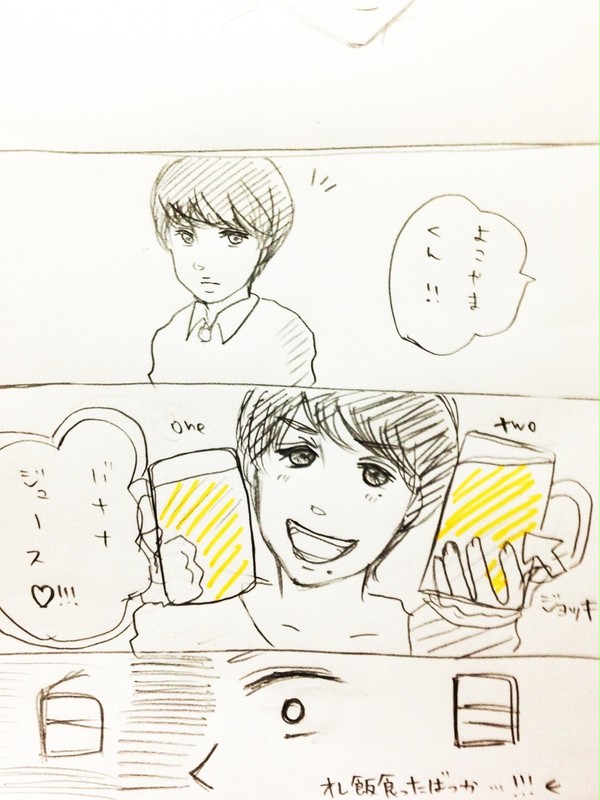 よこやま
くん!!
one
two
ジョッキ
バナナ
ジュース♡!!!
白
目
オレ飯食ったばっか…!!!